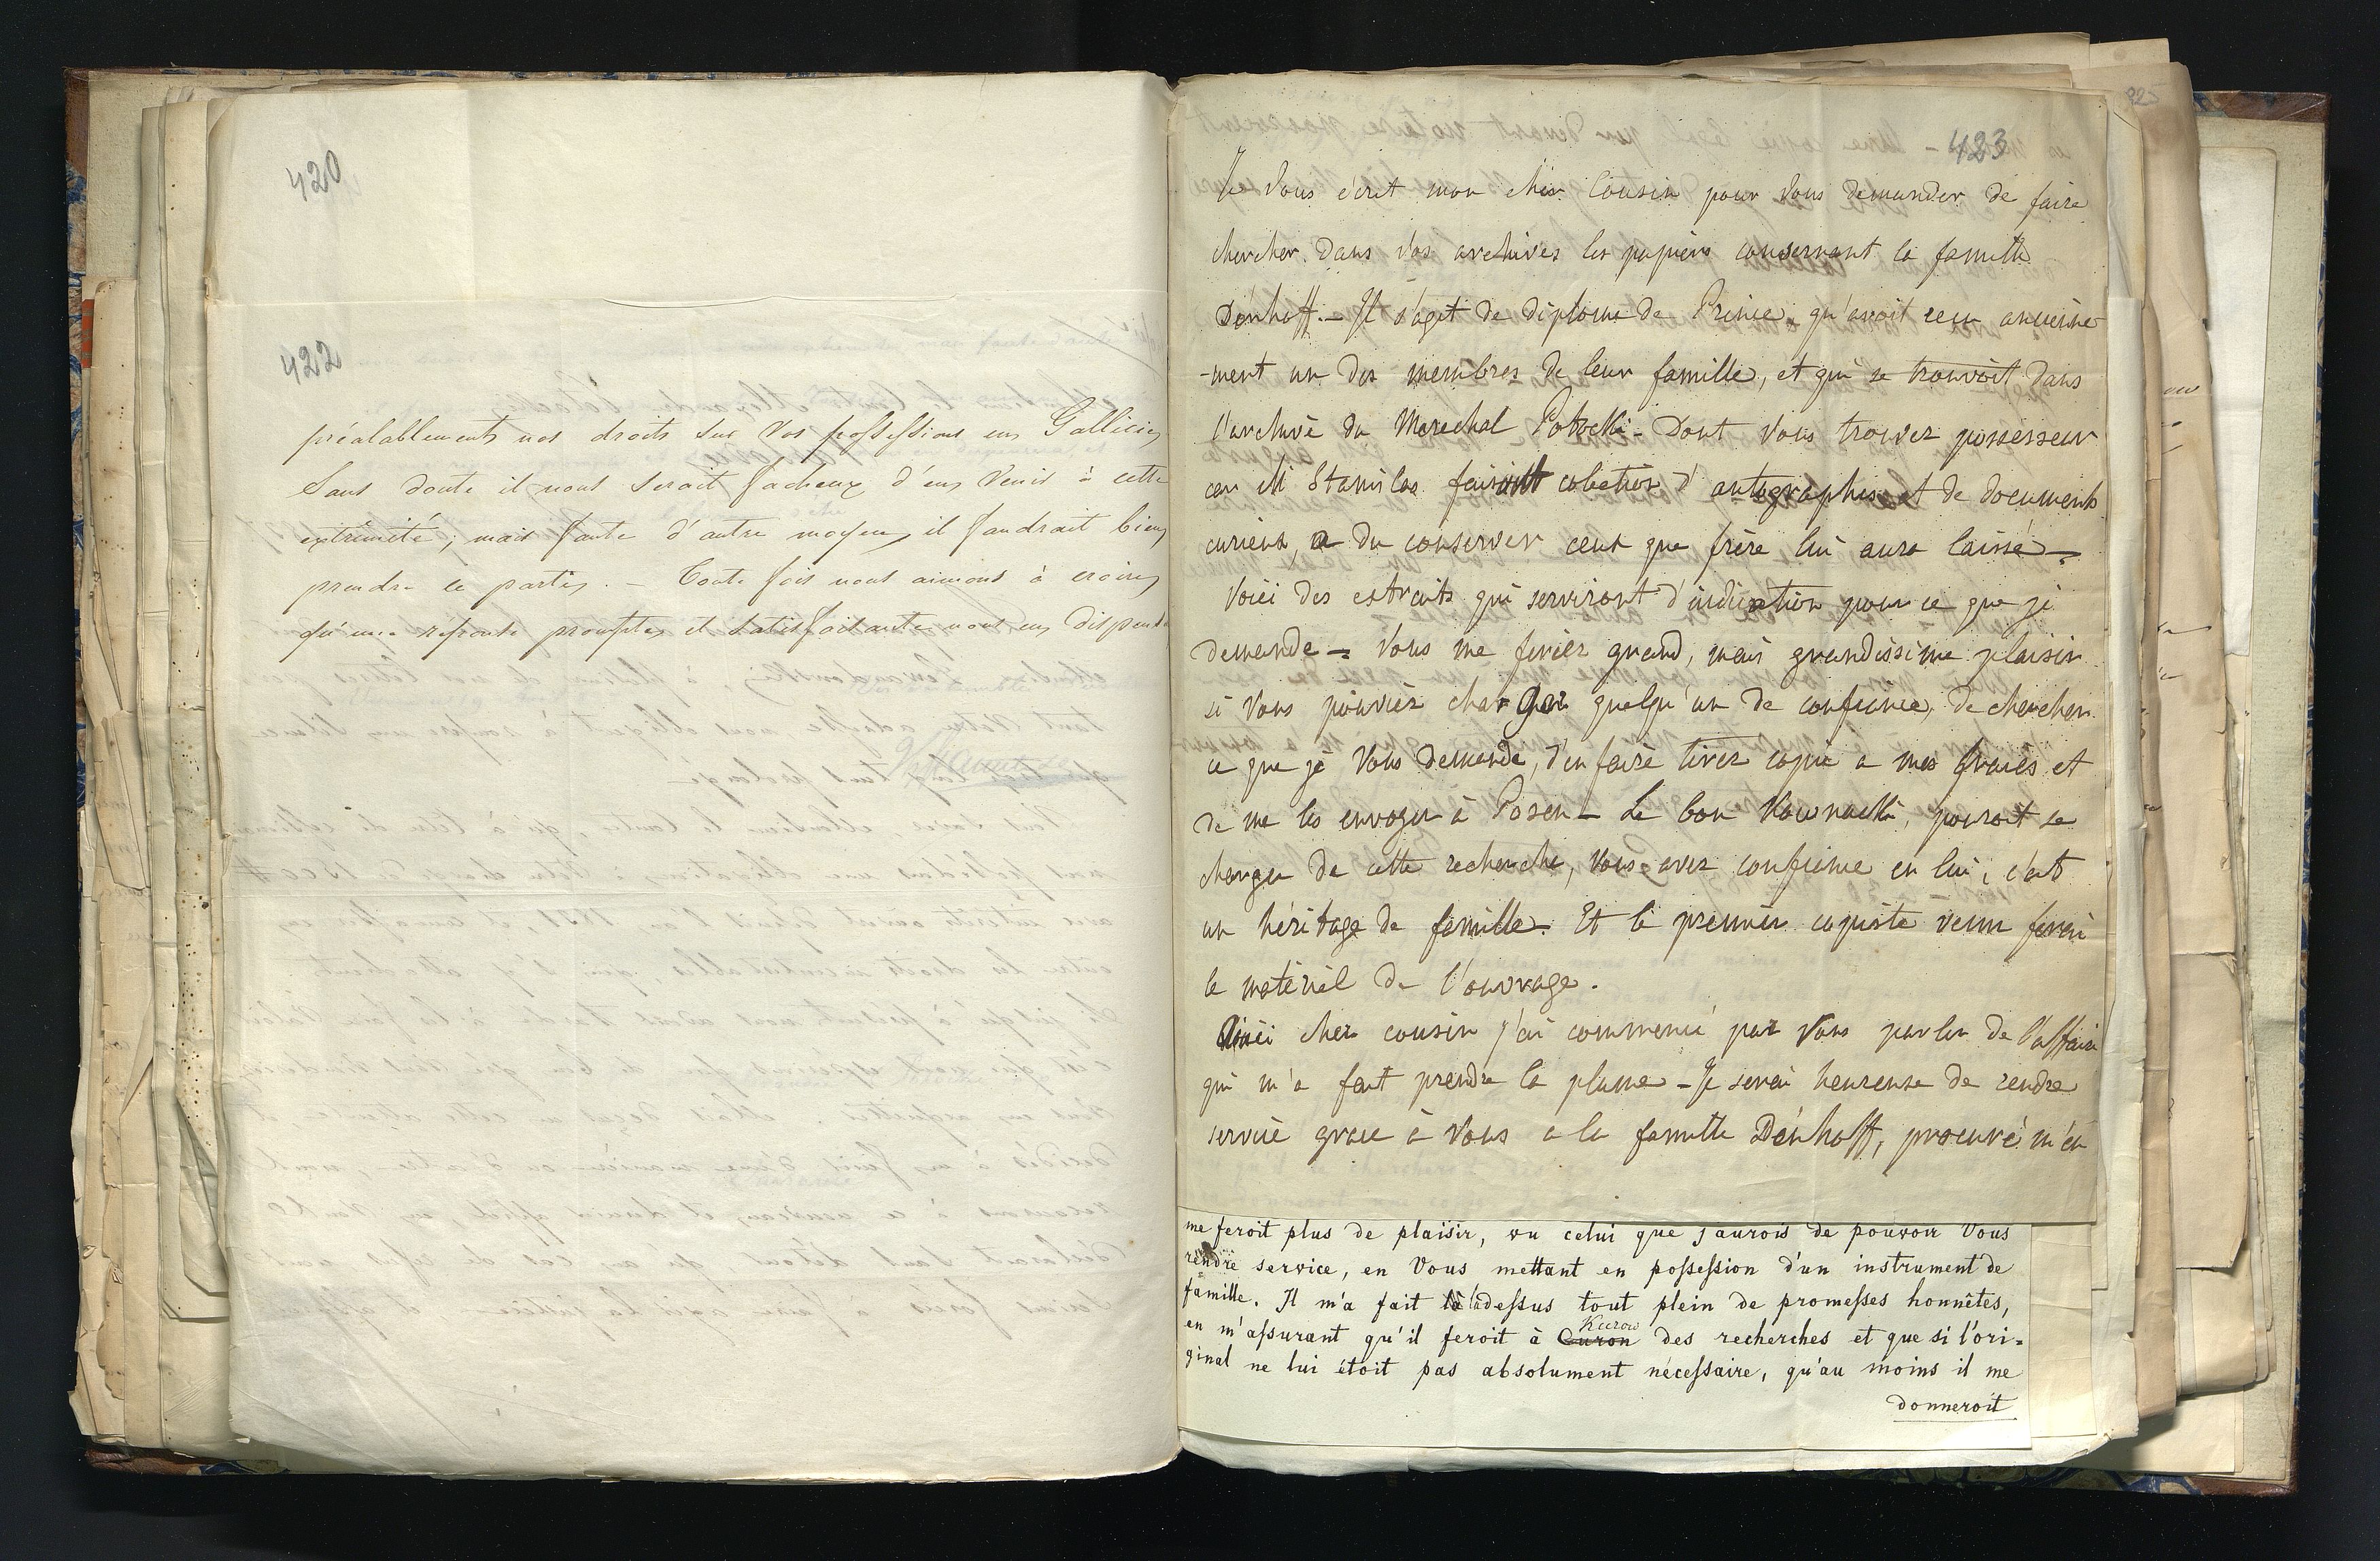 420
422
préalablement nos droits sur vos possessions en Gallicie,
Sans doute il nous serait facheux d'en venir à cette
extrémité; mais faute d'autre moyen, il faudrait bien
prendre ce parti. — Toute fois nous aimons à croire,
qu'une réponse prompte et satisfaisante nous en dispens
423
Je Vous écrit mon cher Cousin pour Vous demander de faire
chercher dans Vos archives les papiers conservant la famille
Dönhoff. — Il s'agit de diplome de Prince qu'avoit recu ancienne
-ment un des membres de leur famille, et qui se trouvoit dans
l'archive du Marechal Potocki - dont Vous trouvez possesseur
car M Stanislas faisant colection d'autographes et de documents
curieux, a du conserver ceux que frère lui aura laissé —
Voici des extraits qui serviront d'indication pour ce que je
demande — Vous me feriez grand, mais grandissime plaisir
si Vous pouviez charger quelqu'un de confience, de chercher
ce que je Vous demande, d'en faire tirer copie a mes fraies et
de me les envoyer à Posen — Le bon pouroit se
charger de cette recherche, Vous avez confience en lui, c'est
un héritage de famille. Et le premier copiste venu ferai
le matériel de l'ouvrage.
Ainsi cher cousin j'ai commencé par Vous parler de l'affaire
qui m'a fait prendre la plume — Je serai heureuse de rendre
service grace à Vous a la famille Dönhoff, procuré m'en
me feroit plus de plaisir, vu celui que j'aurois de pouvoir Vous
rendre service, en Vous mettant en possession d'un instrument de
famille. Il m'a fait là dessus tout plein de promesses honnêtes,
Kurow
en m'assurant qu'il feroit à Curon des recherches et que si l'ori=
ginal ne lui étoit pas absolument nécessaire, qu'au moins il me
donneroit